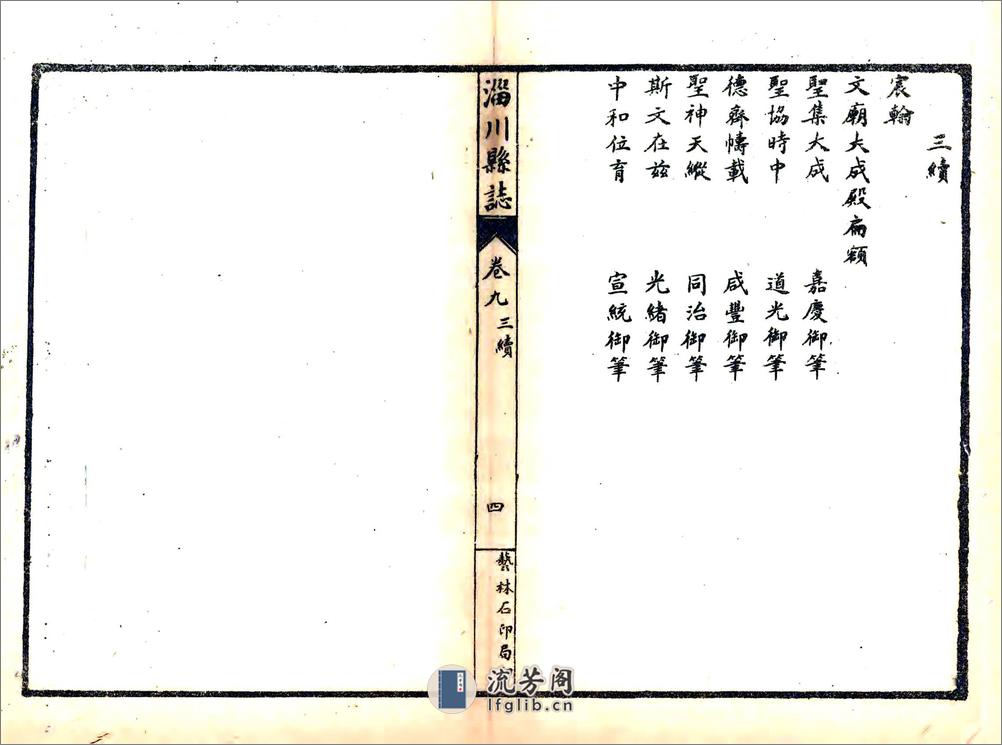 三續
宸翰
文廟大成殿扁額
聖集大成　嘉慶御筆
聖協時中　道光御筆
德齊幬載　咸豐御筆
聖神天縱　同治御筆
斯文在兹　光緒御筆
中和位育　宣統御筆
淄川縣誌　卷九　三續　四　藝林石印局
流芳阁
lfglib.cn